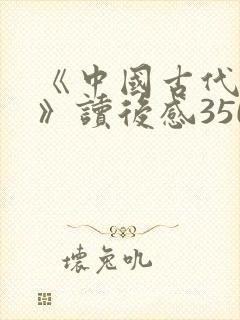 《中國古代
》讀後感350
壞兔吼